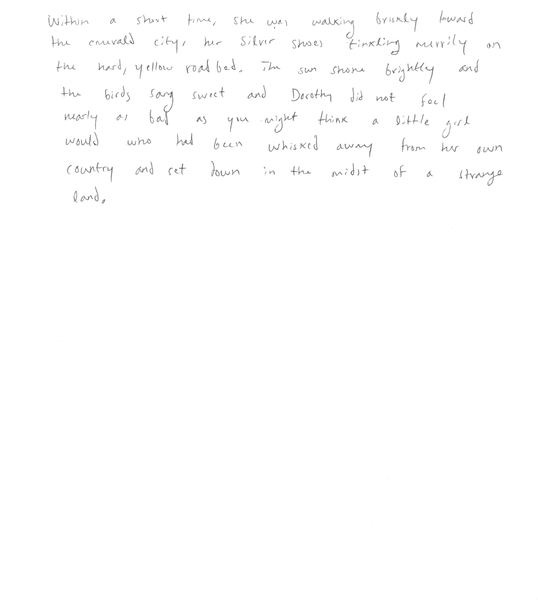 Within a short time, she was walking briskly toward
the emerald city, her Silver shoes tinkling merrily on
the hard, yellow road bed. The sun shone brightly and
the birds sang sweet and Dorothy did not feel
nearly as bad as you might think a little girl
would who had been whisked away from her own
country and set down in the midst of a strange
land.